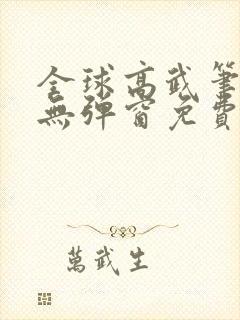 全球高武筆
無彈窗免費
萬武生